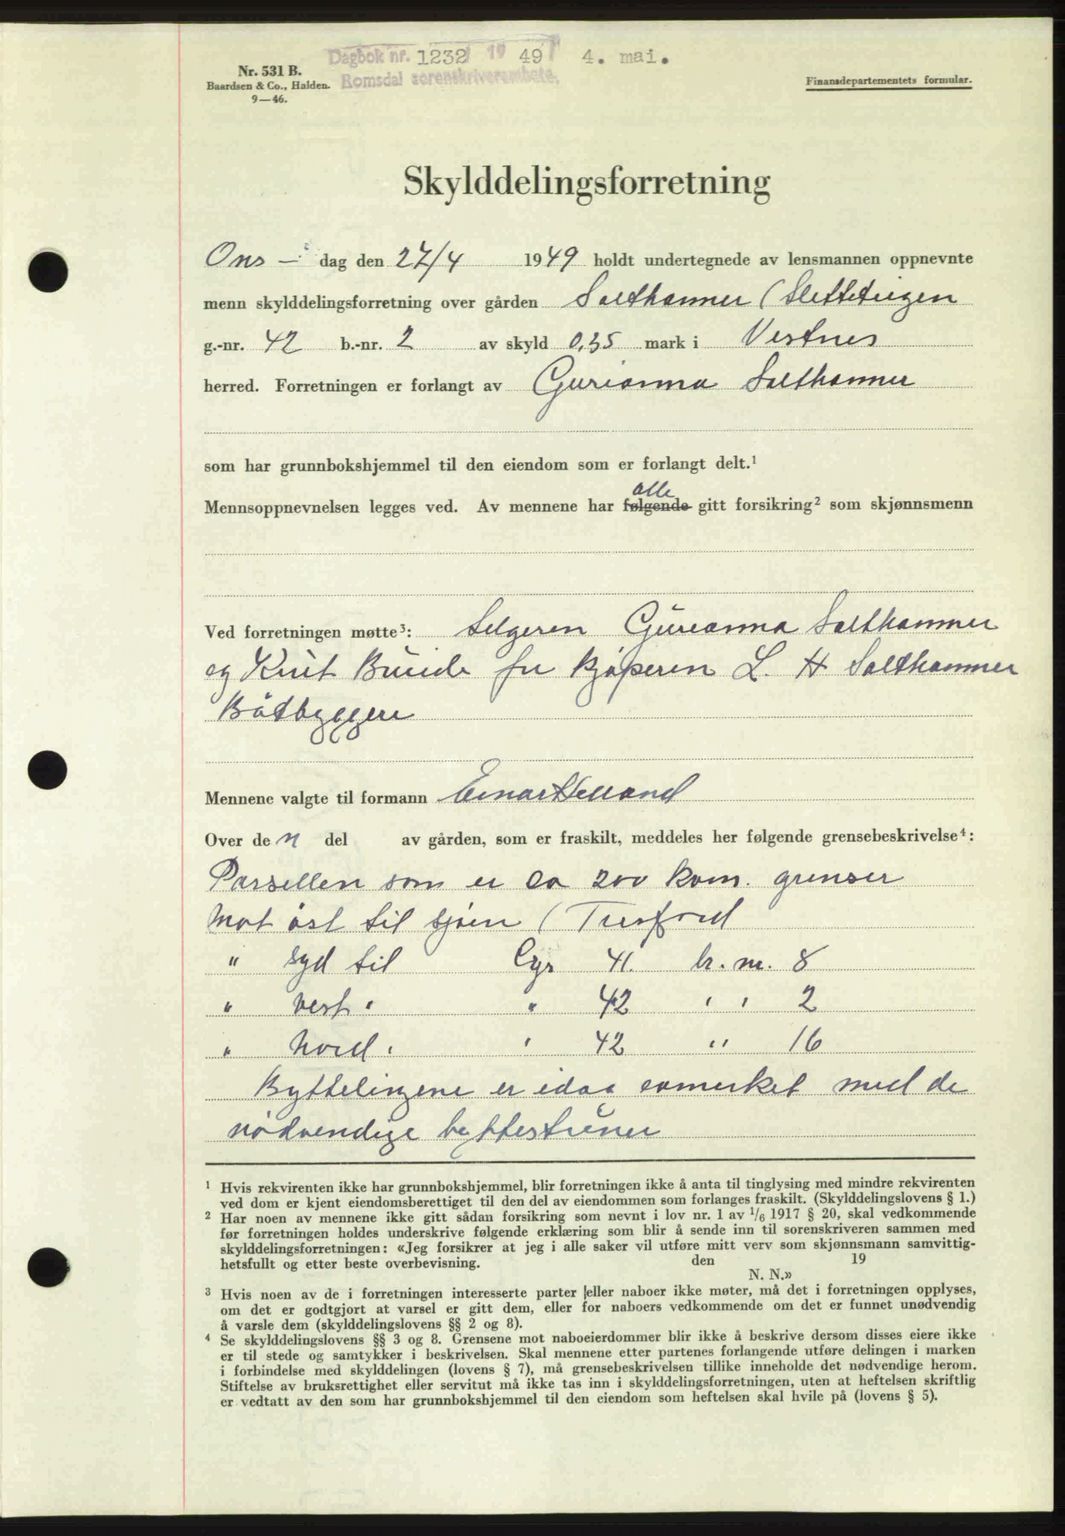 Dagbok nr. 1232 19 49 4. mai.
Romsdal sorenskriverembete.
Nr. 531 B.
Baardsen & Co., Halden.
9—46.
Finansdepartementets formular.
Skylddelingsforretning
Ons — dag den 27/4 1949 holdt undertegnede av lensmannen oppnevnte
menn skylddelingsforretning over gården Salthammer (Sletteteigen
g.-nr. 42 b.-nr. 2 av skyld 0,35 mark i Vestnes
herred. Forretningen er forlangt av Gurianna Salthammer
som har grunnbokshjemmel til den eiendom som er forlangt delt.¹
alle
Mennsoppnevnelsen legges ved. Av mennene har følgende gitt forsikring² som skjønnsmenn
Ved forretningen møtte³: Selgeren Gurianna Salthammer
og Knut Bunde for kjøperen L. H Salthammer
Båtbyggeri
Mennene valgte til formann Einar Helland
Over de n del av gården, som er fraskilt, meddeles her følgende grensebeskrivelse⁴:
Parsellen som er ca 200 kvm. grenser
mot øst til sjøen (Tresfjord
" syd til Gnr 41. br. nr. 8
" vest " " 42 " " 2
" Nord " " 42 " " 16
Byttelinjene er idag avmerket med de
nødvendige byttesteiner
¹ Hvis rekvirenten ikke har grunnbokshjemmel, blir forretningen ikke å anta til tinglysing med mindre rekvirenten
ved dom er kjent eiendomsberettiget til den del av eiendommen som forlanges fraskilt. (Skylddelingslovens § 1.)
² Har noen av mennene ikke gitt sådan forsikring som nevnt i lov nr. 1 av ¹/₆ 1917 § 20, skal vedkommende
før forretningen holdes underskrive følgende erklæring som blir å sende inn til sorenskriveren sammen med
skylddelingsforretningen: «Jeg forsikrer at jeg i alle saker vil utføre mitt verv som skjønnsmann samvittig-
hetsfullt og etter beste overbevisning. den 19
N. N.»
³ Hvis noen av de i forretningen interesserte parter eller naboer ikke møter, må det i forretningen opplyses,
om det er godtgjort at varsel er gitt dem, eller for naboers vedkommende om det er funnet unødvendig
å varsle dem (skylddelingslovens §§ 2 og 8).
⁴ Se skylddelingslovens §§ 3 og 8. Grensene mot naboeierdommer blir ikke å beskrive dersom disses eiere ikke
er til stede og samtykker i beskrivelsen. Skal mennene etter partenes forlangende utføre delingen i marken
i forbindelse med skylddelingen (lovens § 7), må grensebeskrivelsen tillike inneholde det nødvendige herom.
Stiftelse av bruksrettighet eller servitut må ikke tas inn i skylddelingsforretningen, uten at heftelsen skriftlig
er vedtatt av den som har grunnbokshjemmel til den eiendom som heftelsen skal hvile på (lovens § 5).